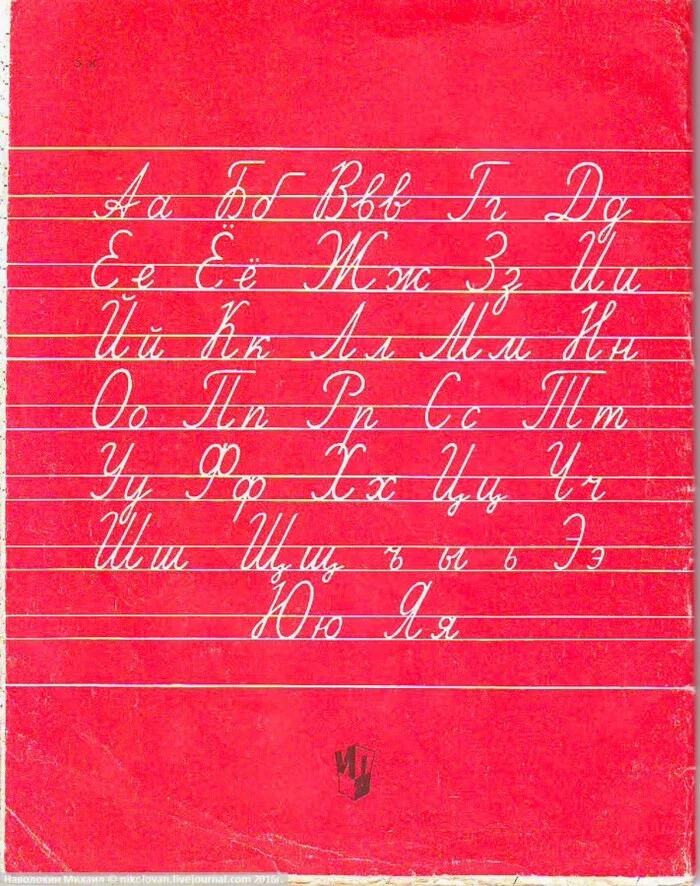 Аа Бб Ввв Гг Дд
Ее Ёё Жж Зз Ии
Йй Кк Лл Мм Нн
Оо Пп Рр Сс Тт
Уу Фф Хх Цц Чч
Шш Щщ ъ ы ь Ээ
Юю Яя
Наволокин Михаил © nikc-lovan.livejournal.com 2016г.